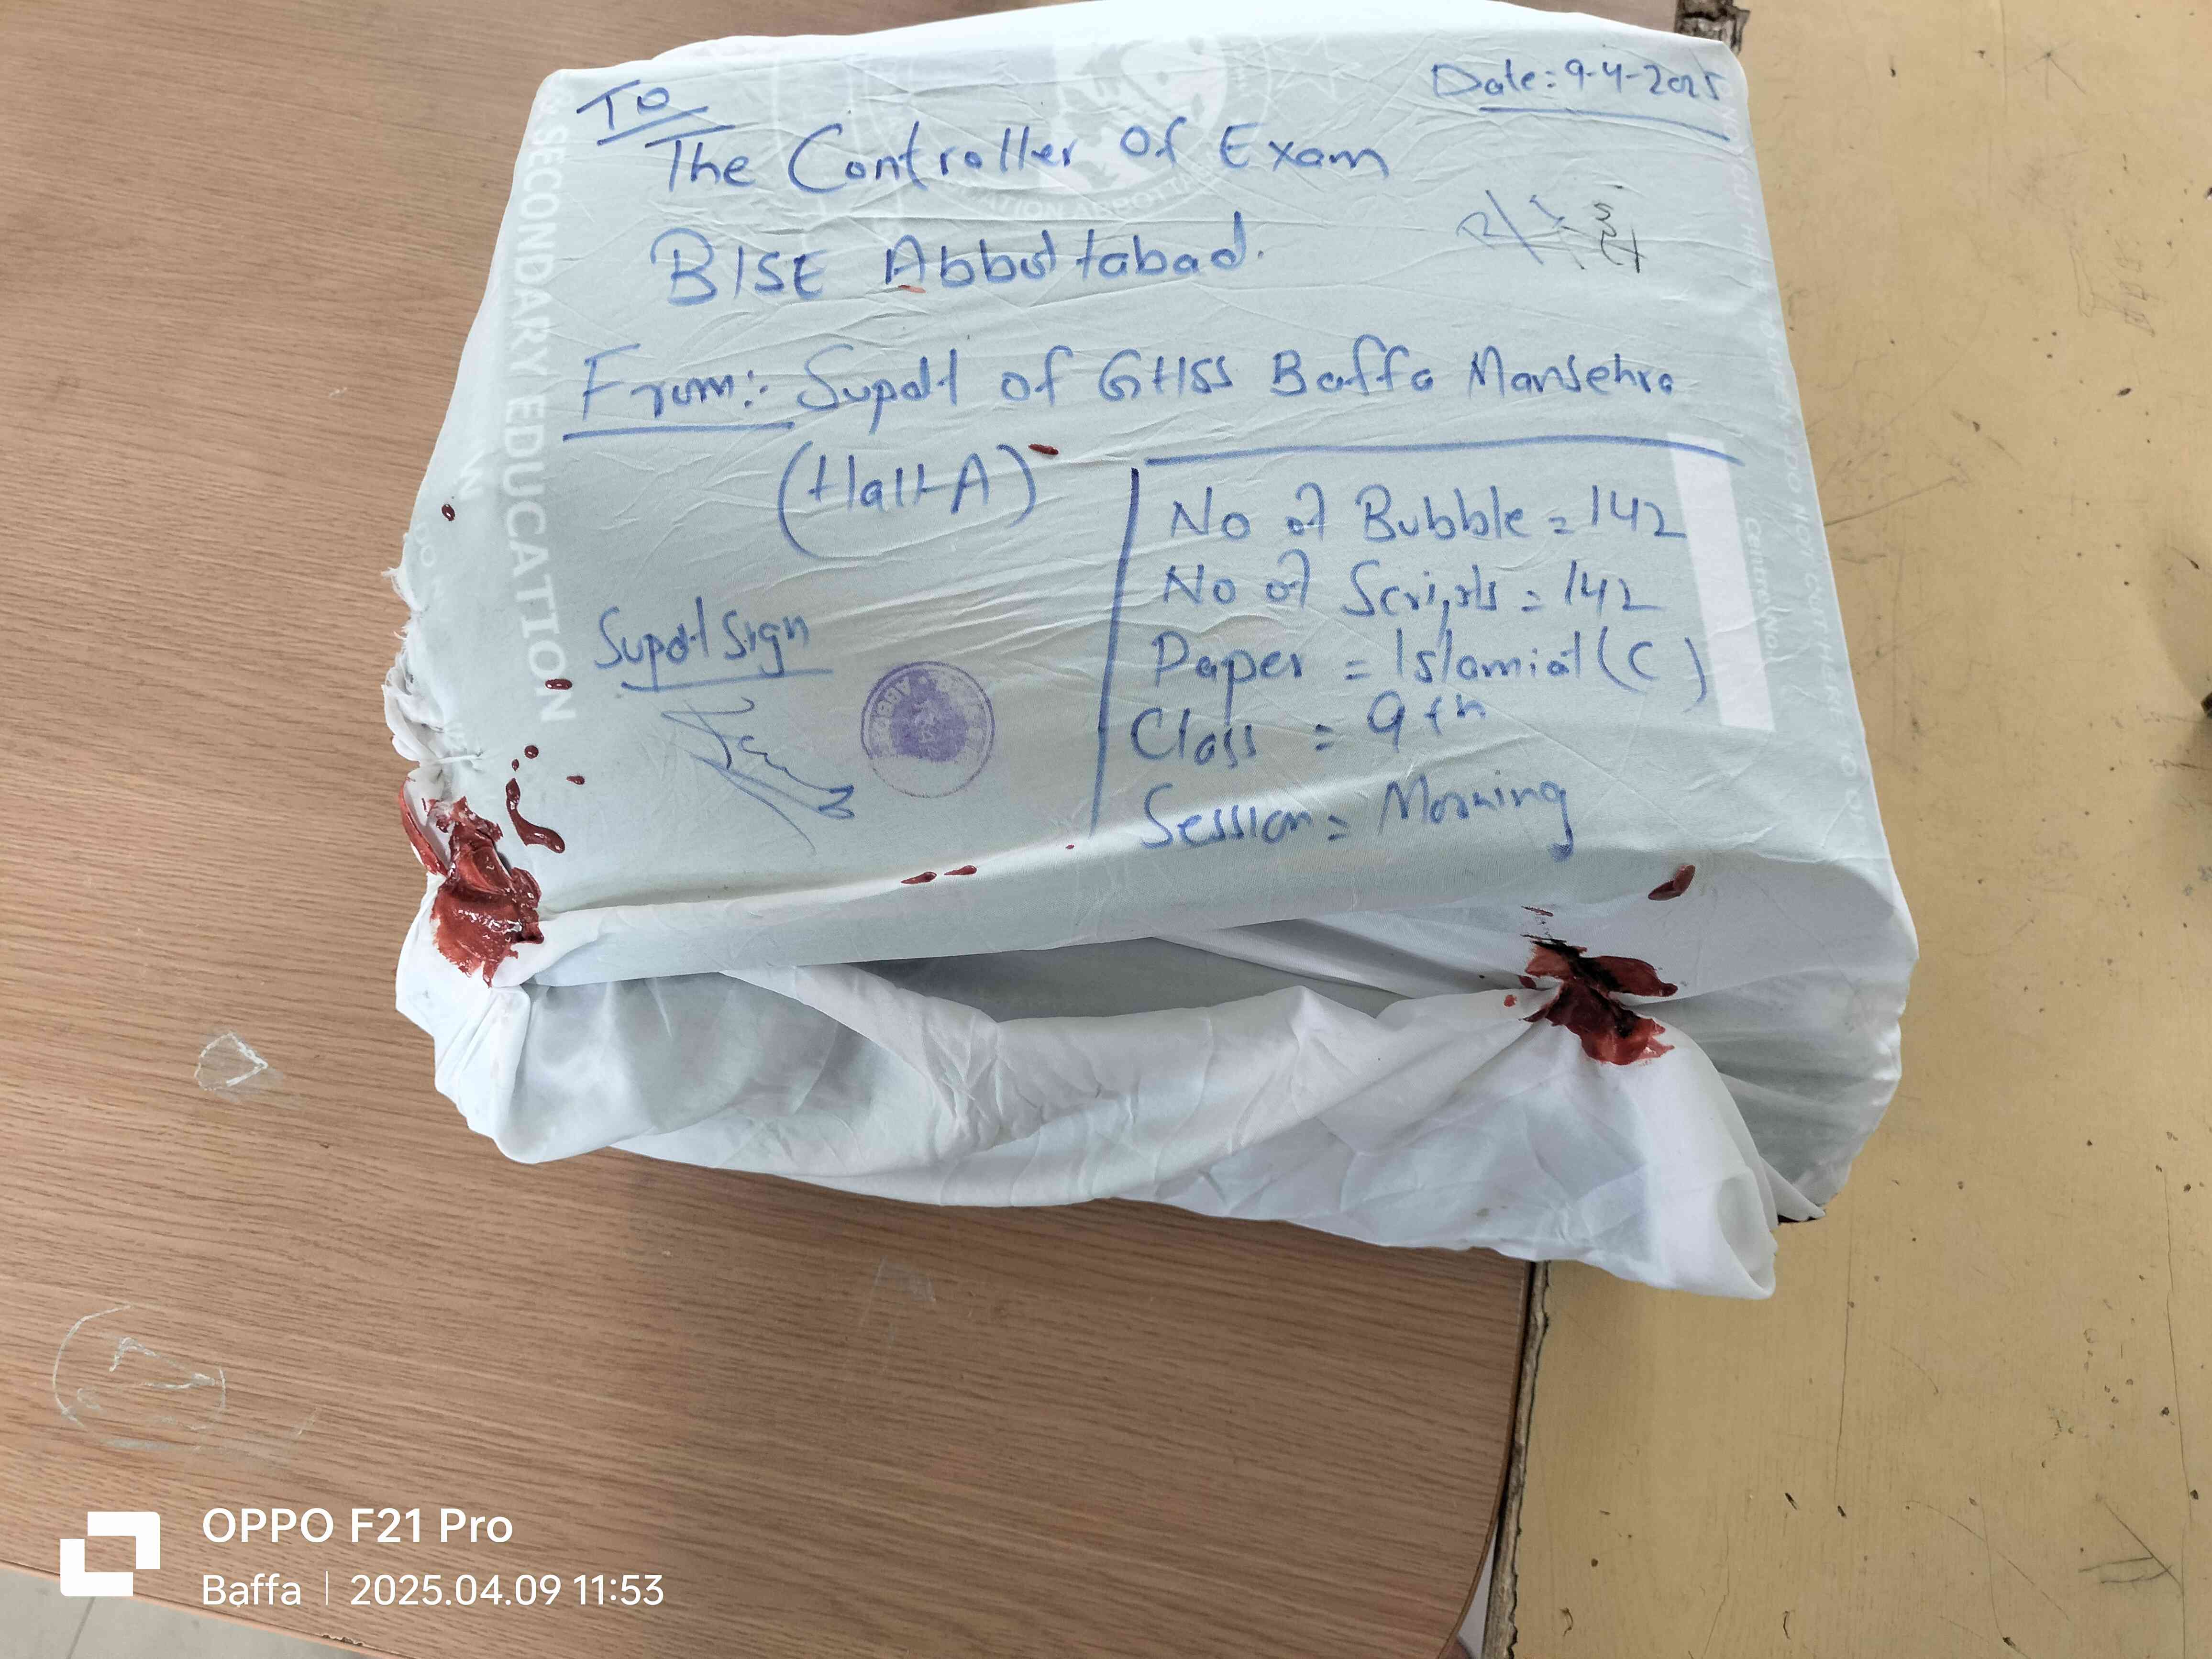 To
Date: 9-4-2025
The Controller Of Exam
BISE Abbottabad.
From:- Supdt of GHSS Baffa Mansehra
(Hall-A)
No of Bubble = 142
No of Scripts = 142
Paper = Islamiat (C)
Class = 9th
Session = Morning
Supdt Sign
SECONDARY EDUCATION
Centre No.
OPPO F21 Pro
Baffa | 2025.04.09 11:53